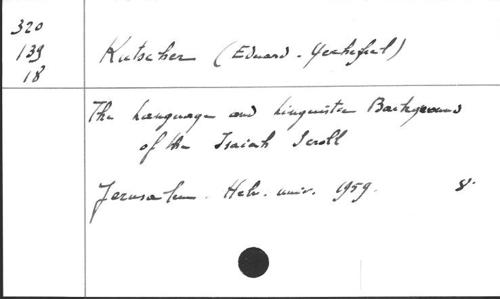 320
139
18
Kutscher (Eduard-Yechezkel)
The Language and Linguistic Background
of the Isaiah Scroll
Jerusalem. Heb. univ. 1959. 8°